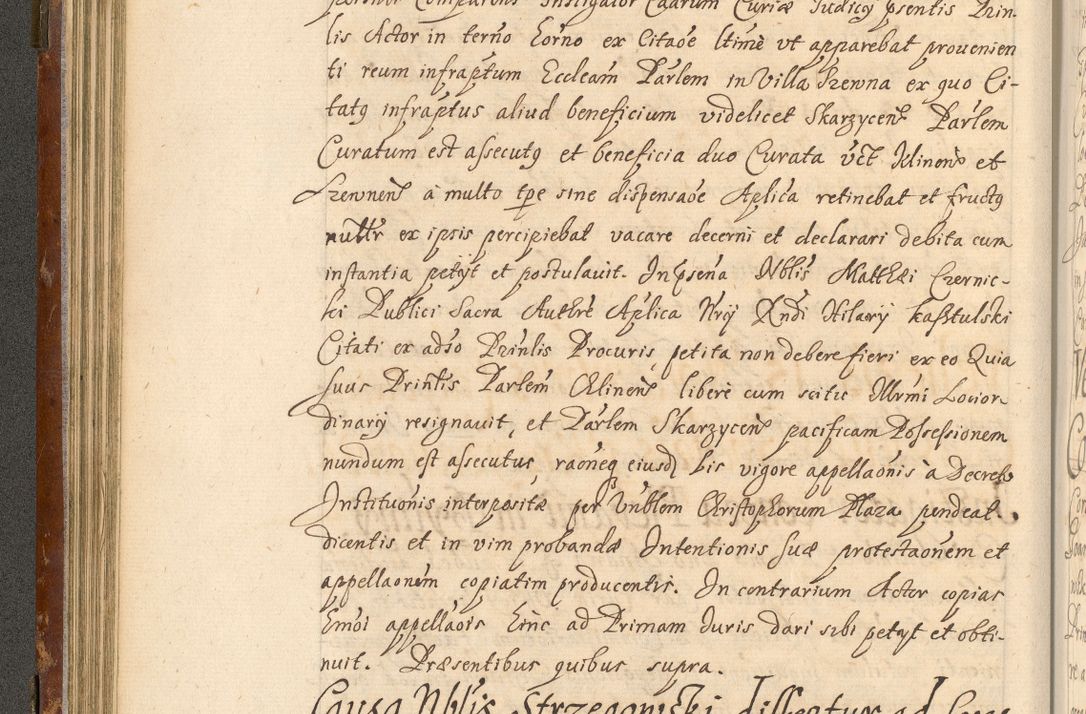 personor Comparens Instigator Caarum Curiæ Judicij pŝentis Prin-
lis Actor in terño horno ex Citaõe ltimè vt apparebat prouenien
ti reum infraptum Eccleam Parlem in Villa Szewna ex quo Ci-
tatꝯ infraptus aliud beneficium videlicet Skarzycen̄ Parlem
Curatum est assecutꝯ et beneficia duo Curata vc̄t Mlinen̄ et
Szewnen̄ à multo tp̄e sine dispensaõe Aplica retinebat et fructꝯ
ex ipsis percipiebat vacare decerni et declarari debita cum
instantia petyt et postulauit. In pŝena Nblis Matthæi Czernic-
ki Publici Sacra Authre Aplica Nrij Rndi Hilarij
Citati ex adṽso Prinlis Procuris petita non debere fieri ex eo Quia
suus Prinlis Parlem Mlinen̄ liberè cum scitu Illrmi Locior-
dinarij resignauit, et Parlem Skarzycen̄ pacificam Possessionem
nundum est assecutus raõneq eiusd lis vigore appellaõnis à Decreto
Instituõnis interpositæ per Vnblem Christophorum Plaza pendeat
dicentis et in vim probandæ Intentionis suæ protestaõnem et
appellaonem copiatim producentis. In contrarium Actor copias
hmoi appellaõis hinc ad Primam Juris dari sibi petyt et obti-
nuit. Præsentibus quibus supra.
Causa Nblis Strzegowski